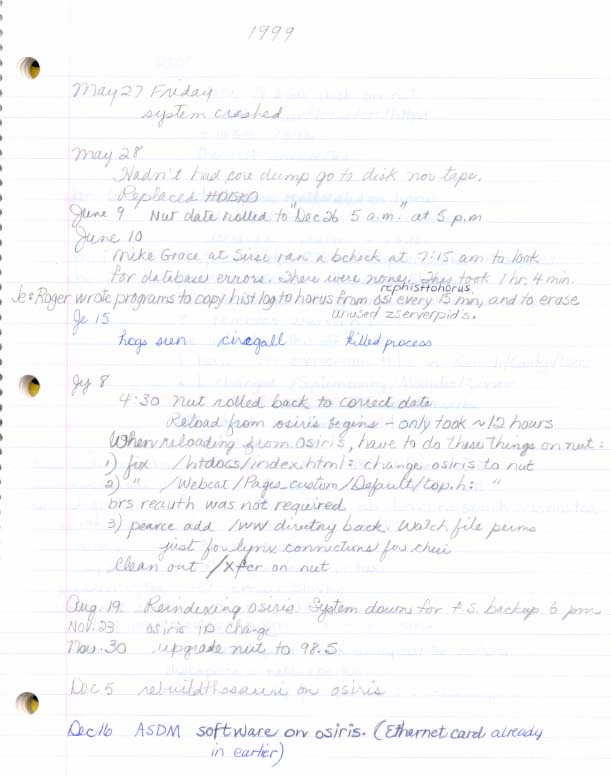 1999
May 27 Friday
system crashed
May 28
Hadn't had core dump go to disk nor tape.
Replaced HDISK0
June 9 Nut date rolled to "Dec 26 5 a.m." at 5 p.m
June 10
Mike Grace at Sirsi ran a bcheck at 7:15 am to look
for database errors. There were none. This took 1 hr. 4 min.
rcphisttohorus,
Je: Roger wrote programs to copy hist log to horus from osi every 15 min, and to erase
unused zserverpid's.
Je 15
hogs seen circgall killed process
Jy 8
4:30 nut rolled back to correct date
Reload from osiris begins - only took ~12 hours
When reloading from Osiris, have to do these things on nut:
1) fix /htdocs/index.html: change osiris to nut
2) " /Webcat/Pages_custom/Default/top.h: "
brs reauth was not required
3) pearce add /ww directory back. Watch file perms
just for lynx connections for chui
Clean out /Xfer on nut
Aug. 19 Reindexing osiris. System down for f.s. backup 6 pm
Nov. 23 osiris ip change
Nov. 30 upgrade nut to 98.5
Dec 5 rebuildthesauri on osiris
Dec 16 ASDM software on osiris. (Ethernet card already
in earlier)